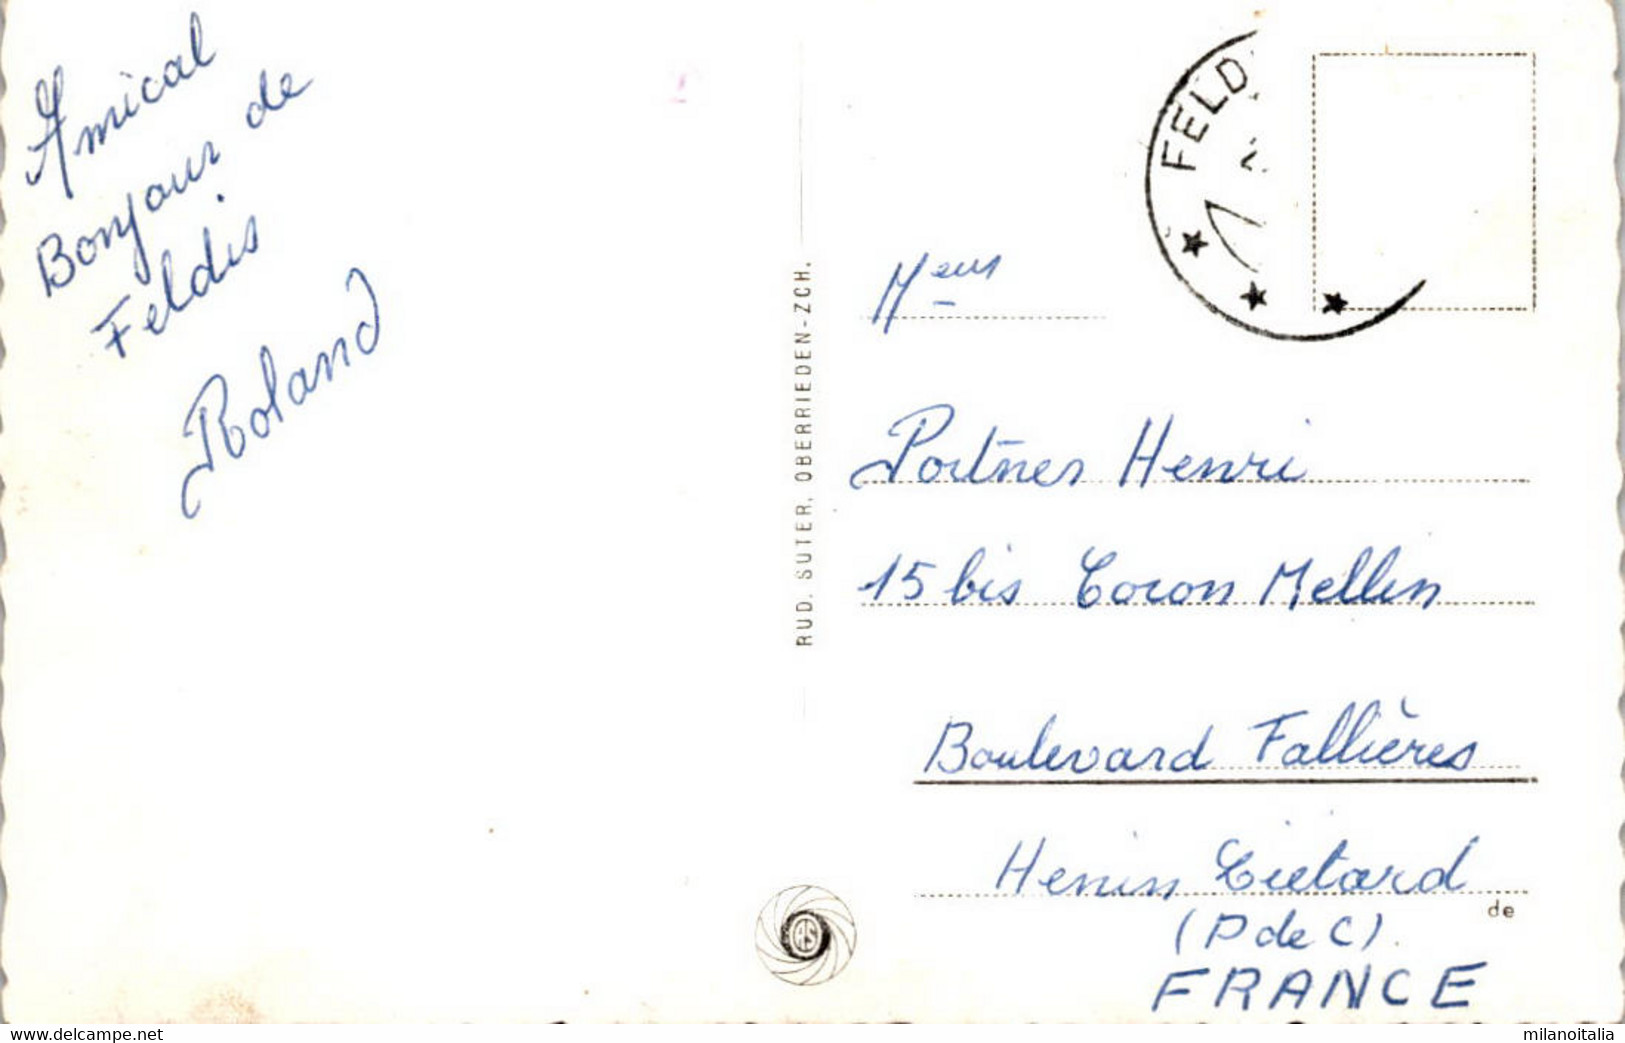 Amical
Bonjour de
Feldis
Roland
RUD. SUTER, OBERRIEDEN-ZCH.
FELD
Meus
Portner Henri
15 bis Coron Mellin
Boulevard Fallières
Henin Liétard
de
(P de C).
FRANCE
RS
www.delcampe.net
milanoitalia